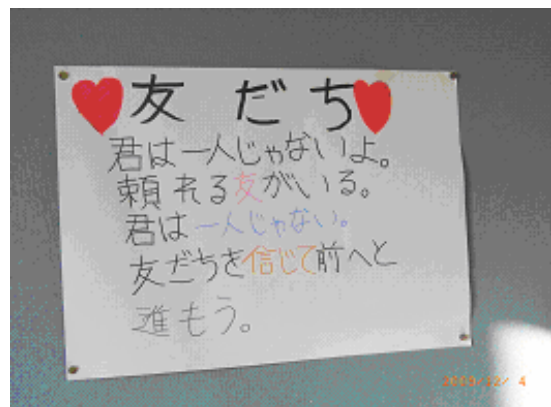 友だち
君は一人じゃないよ。
頼れる友がいる。
君は一人じゃない。
友だちを信じて前へと
進もう。